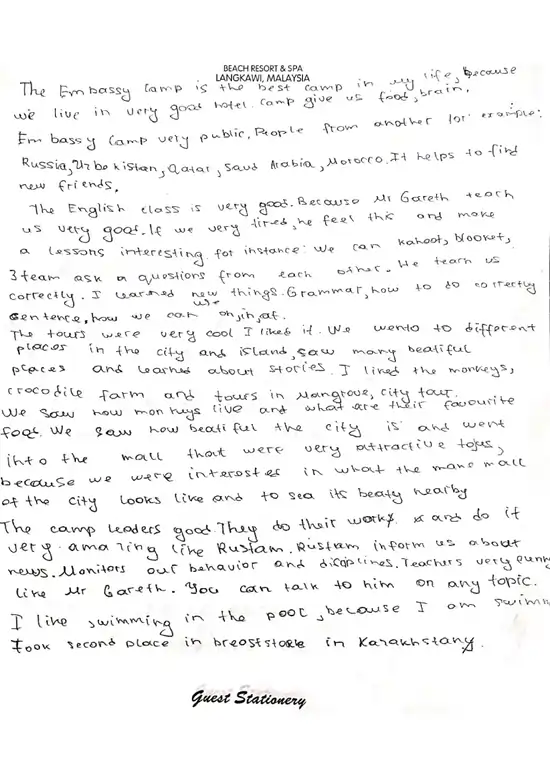 BEACH RESORT & SPA
LANGKAWI, MALAYSIA
The Embassy Camp is the best camp in my life, because
we live in very good hotel. Camp give us food, brain.
Embassy Camp very public. People from another for example:
Russia, Uzbekistan, Qatar, Saud Arabia, Morocco. It helps to find
new friends.
The English class is very good. Because Mr Gareth teach
us very good. If we very tired, he feel this and make
a lessons interesting. for instance: We can kahoot, blooket,
3 team ask a questions from each other. He teach us
correctly. I learned new things. Grammar, how to do correctly
sentence, how we can use on, in, at.
The tours were very cool I liked it. We wento to different
places in the city and island, saw many beatiful
places and learned about stories. I liked the monkeys,
crocodile farm and tours in Mangrove, city tour.
We saw how monkeys live and what are their favourite
food. We saw how beatiful the city is and went
into the mall that were very attractive toys,
because we were interested in what the mane mall
of the city looks like and to sea its beaty nearby
The camp leaders good. They do their works and do it
very amazing like Rustam. Rustam inform us about
news. Monitors our behavior and diciplines. Teachers very funny
like Mr Gareth. You can talk to him on any topic.
I like swimming in the pool, because I am swimm
took second place in breaststoke in Kazakhstany.
Guest Stationery